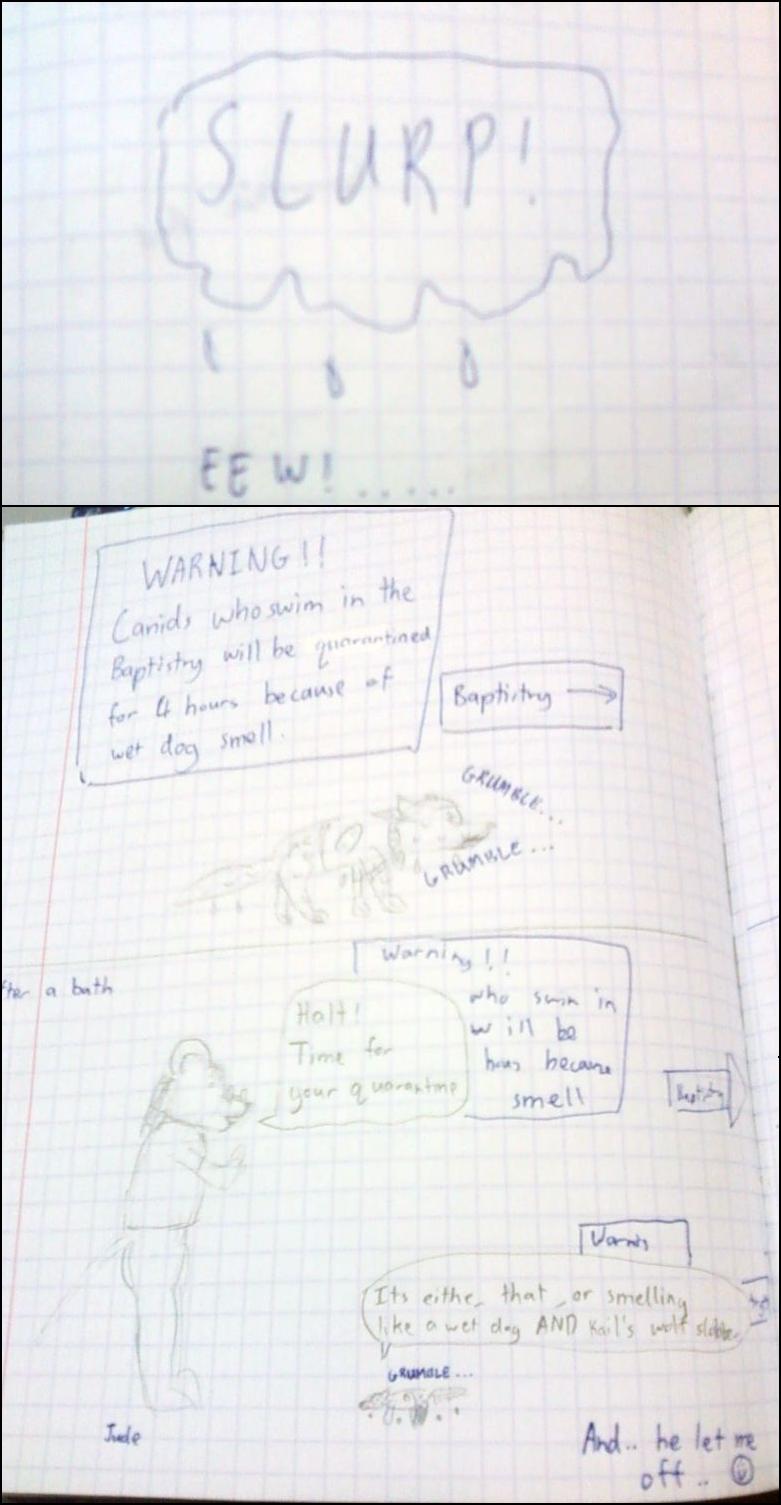 SLURP!
EEW!.....
WARNING!!
Canids who swim in the
Baptistry will be quarantined
for 4 hours because of
wet dog smell.
Baptistry →
GRUMBLE...
GRUMBLE...
fter a bath
Warning!!
who swim in
will be
hours because
smell
Halt!
Time for
your quarantine
Its either that, or smelling
like a wet dog AND Kail's wolf
GRUMBLE...
Jude
And.. he let me
off..